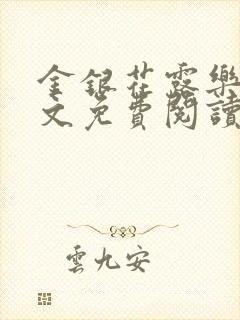 金銀花露樂
文免費閱讀
雲九安